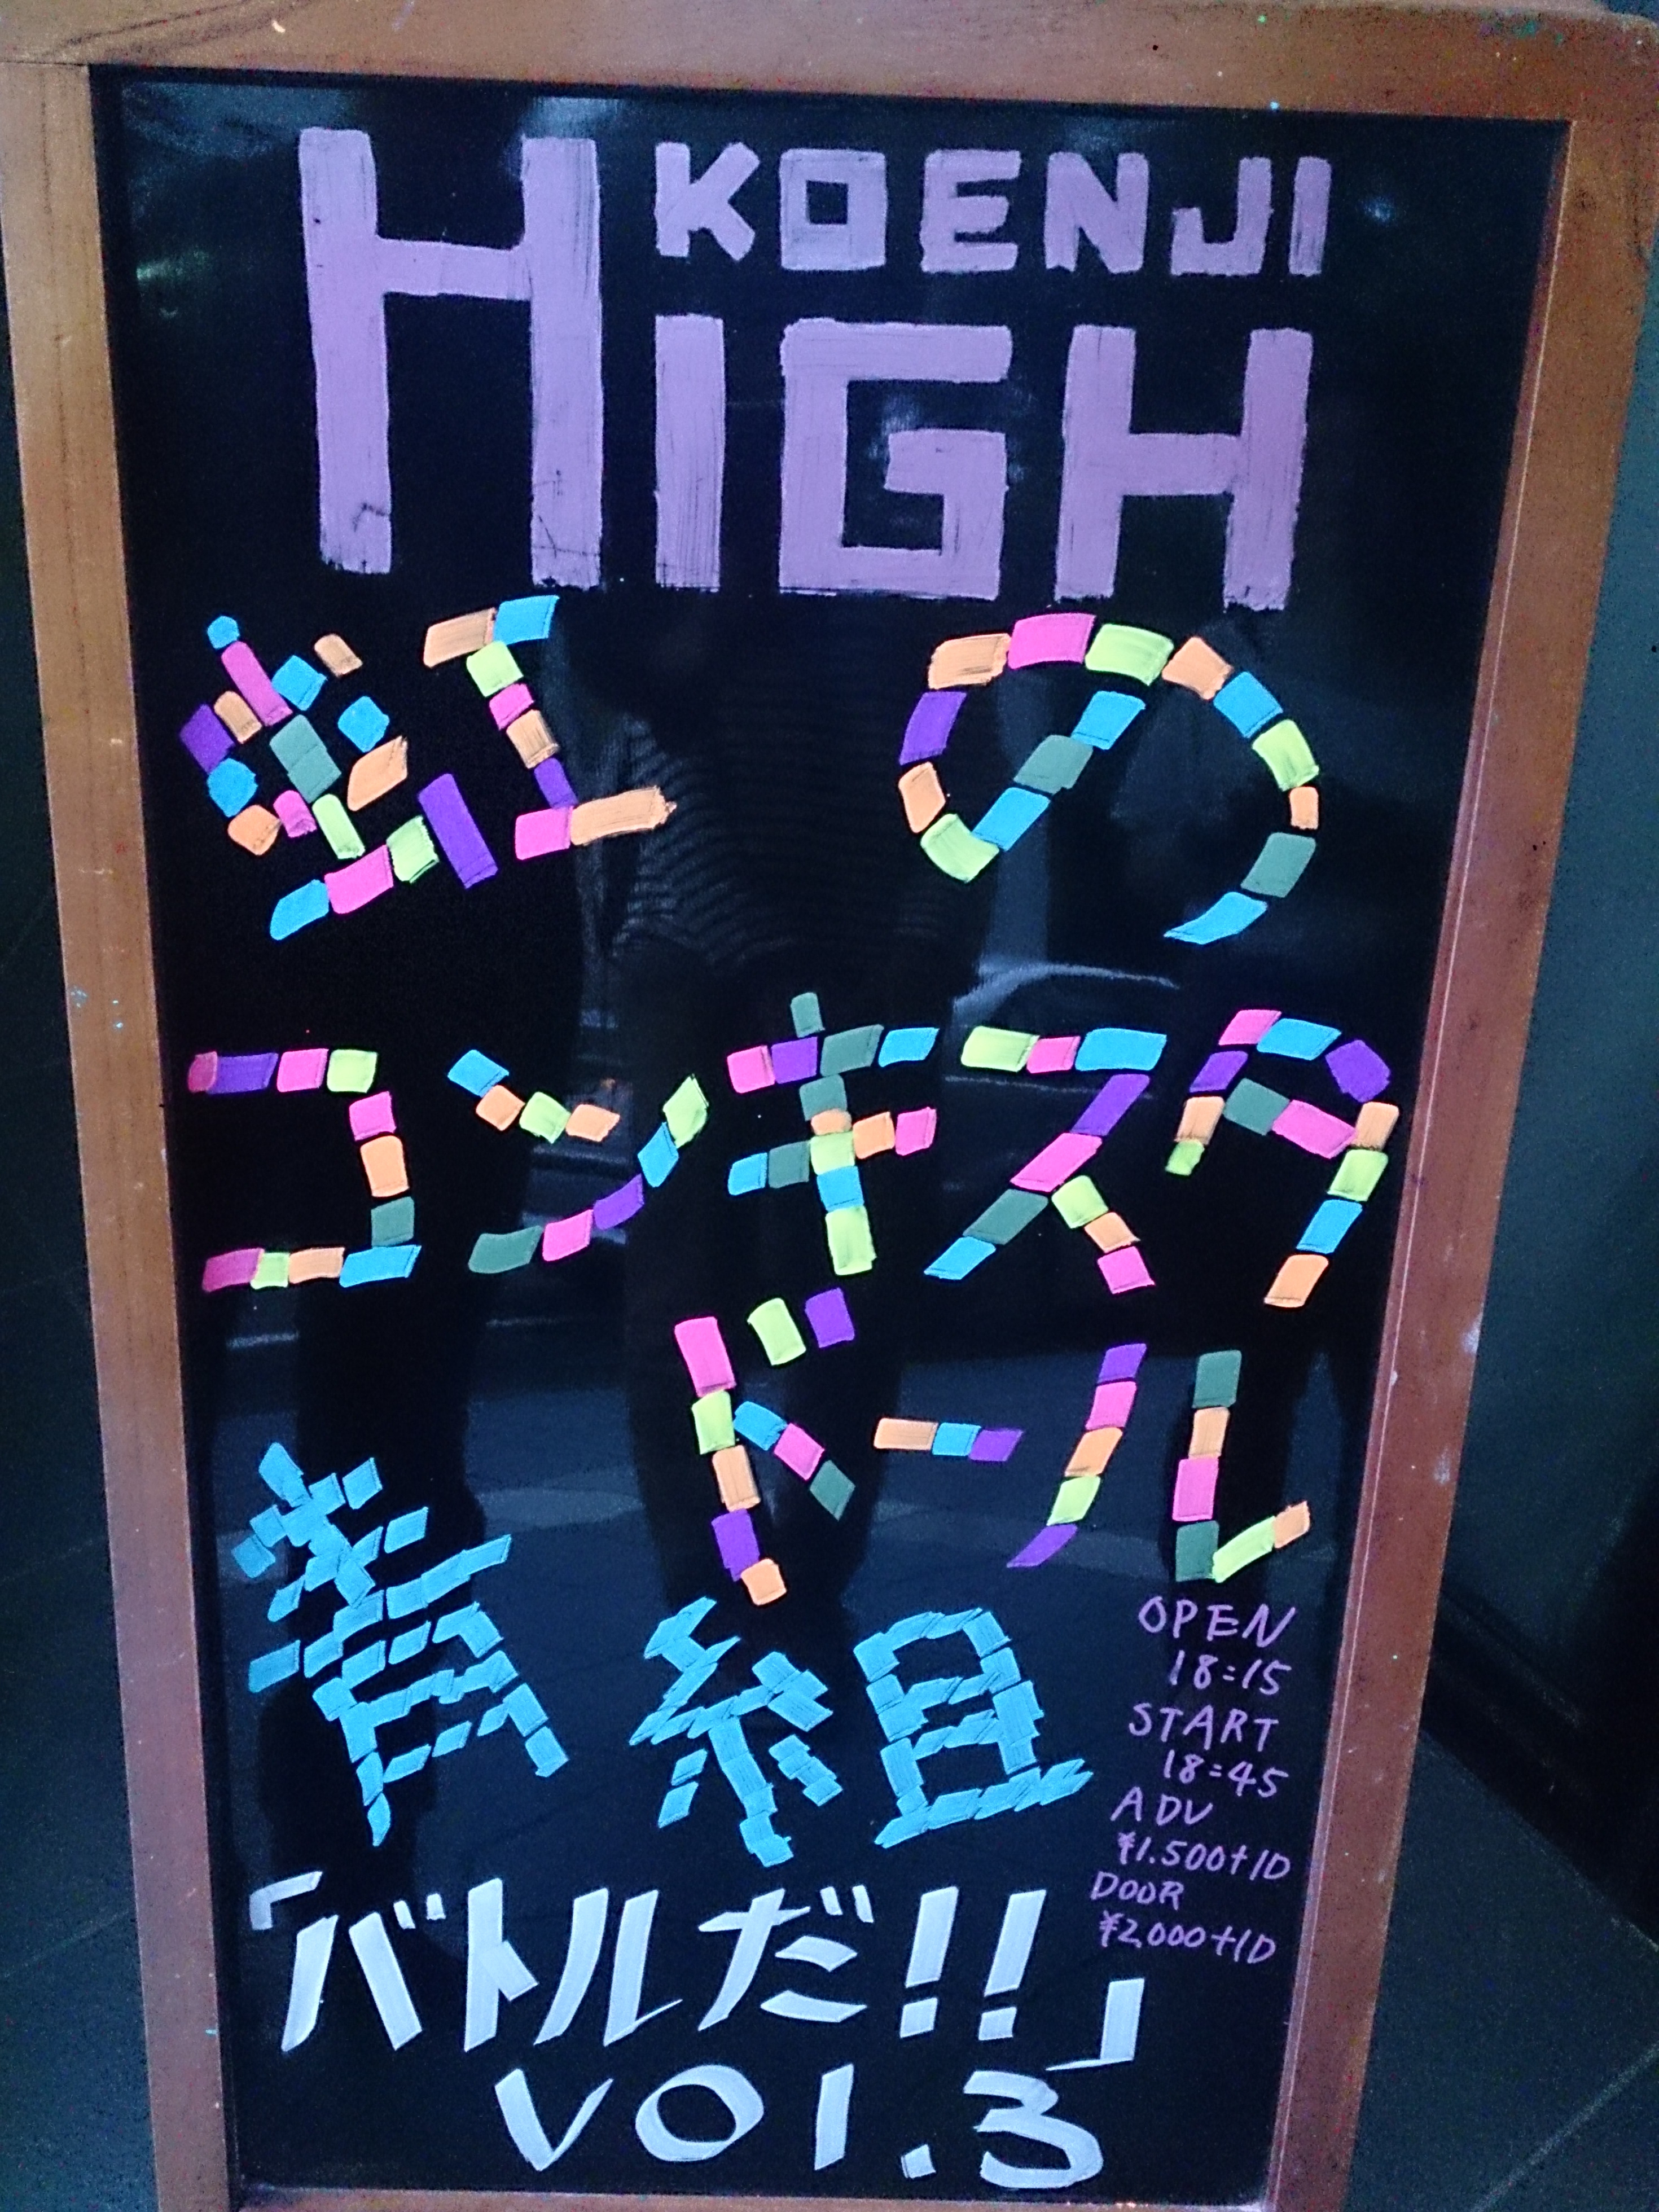 KOENJI
HIGH
虹の
コンキスタ
ドール
青組
OPEN
18:15
START
18:45
ADV
¥1.500+1D
DOOR
¥2,000+1D
「バトルだ!!」
VOl.3